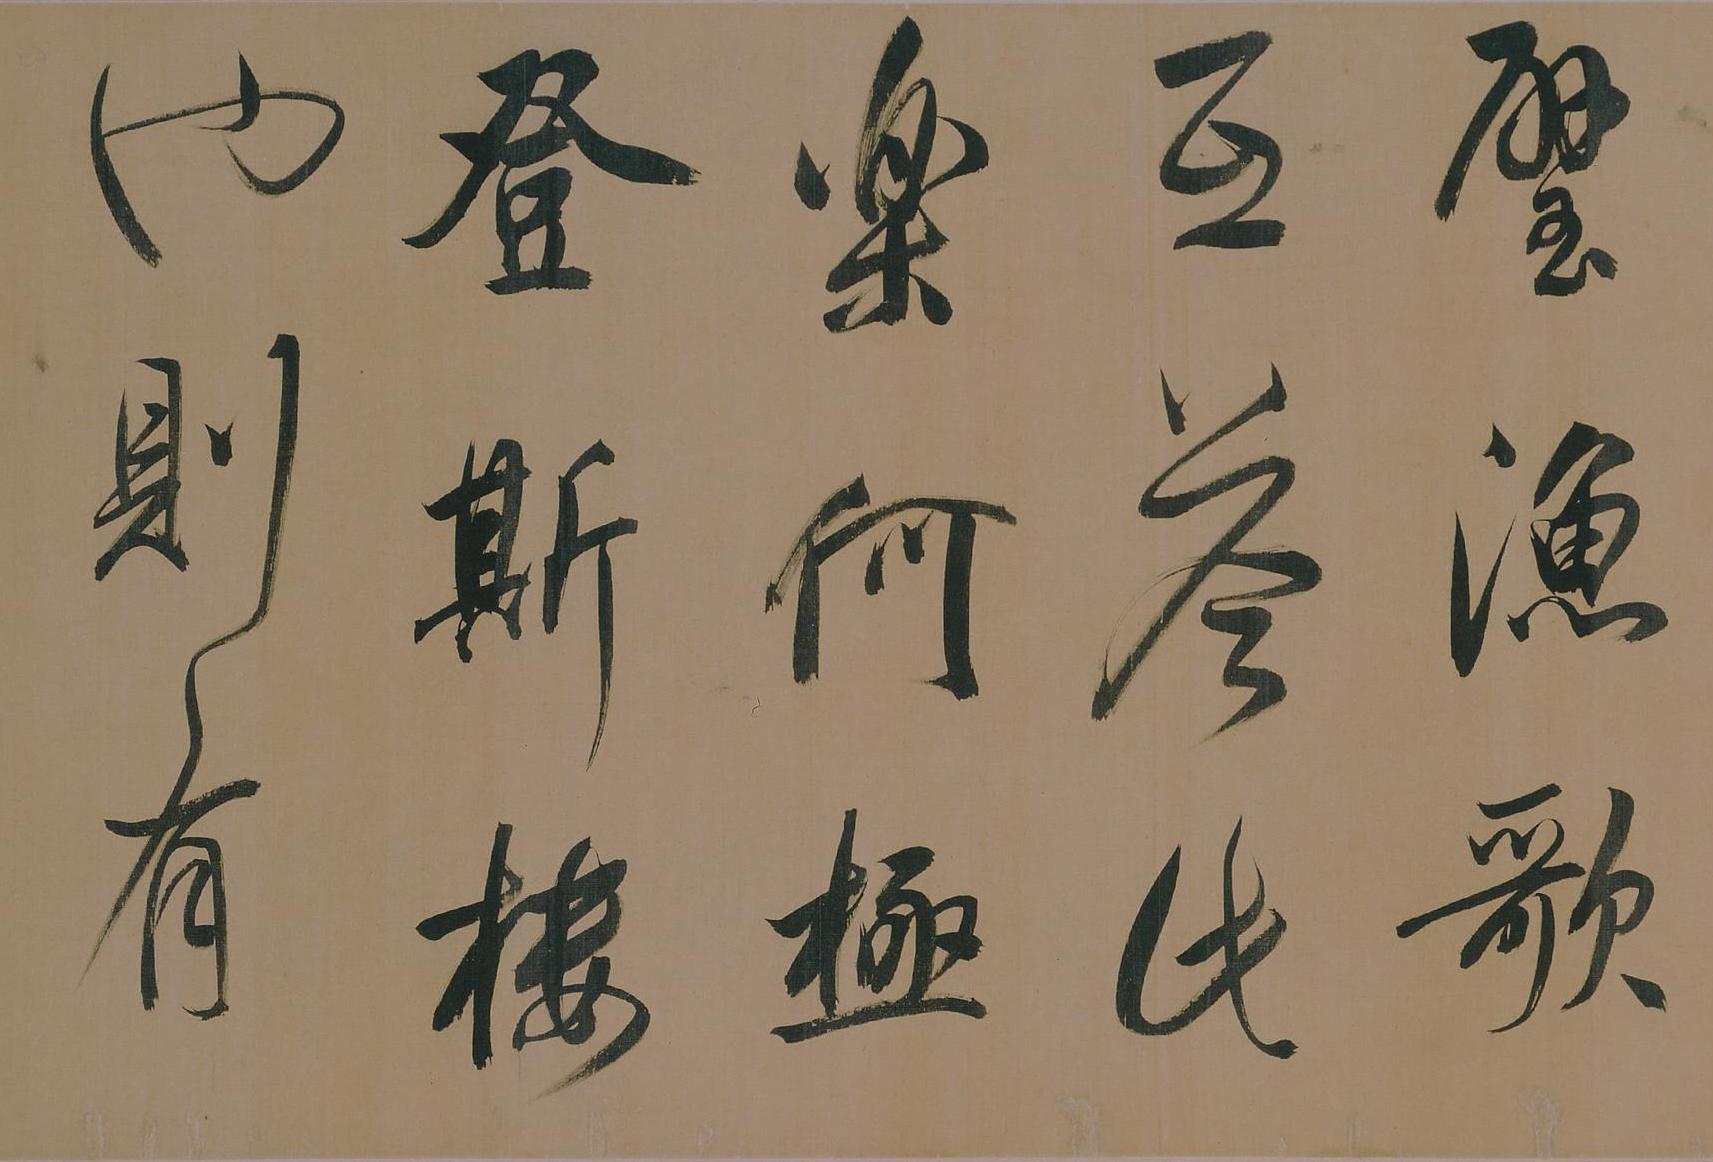 璧漁歌
互答此
樂何極
登斯樓
也則有